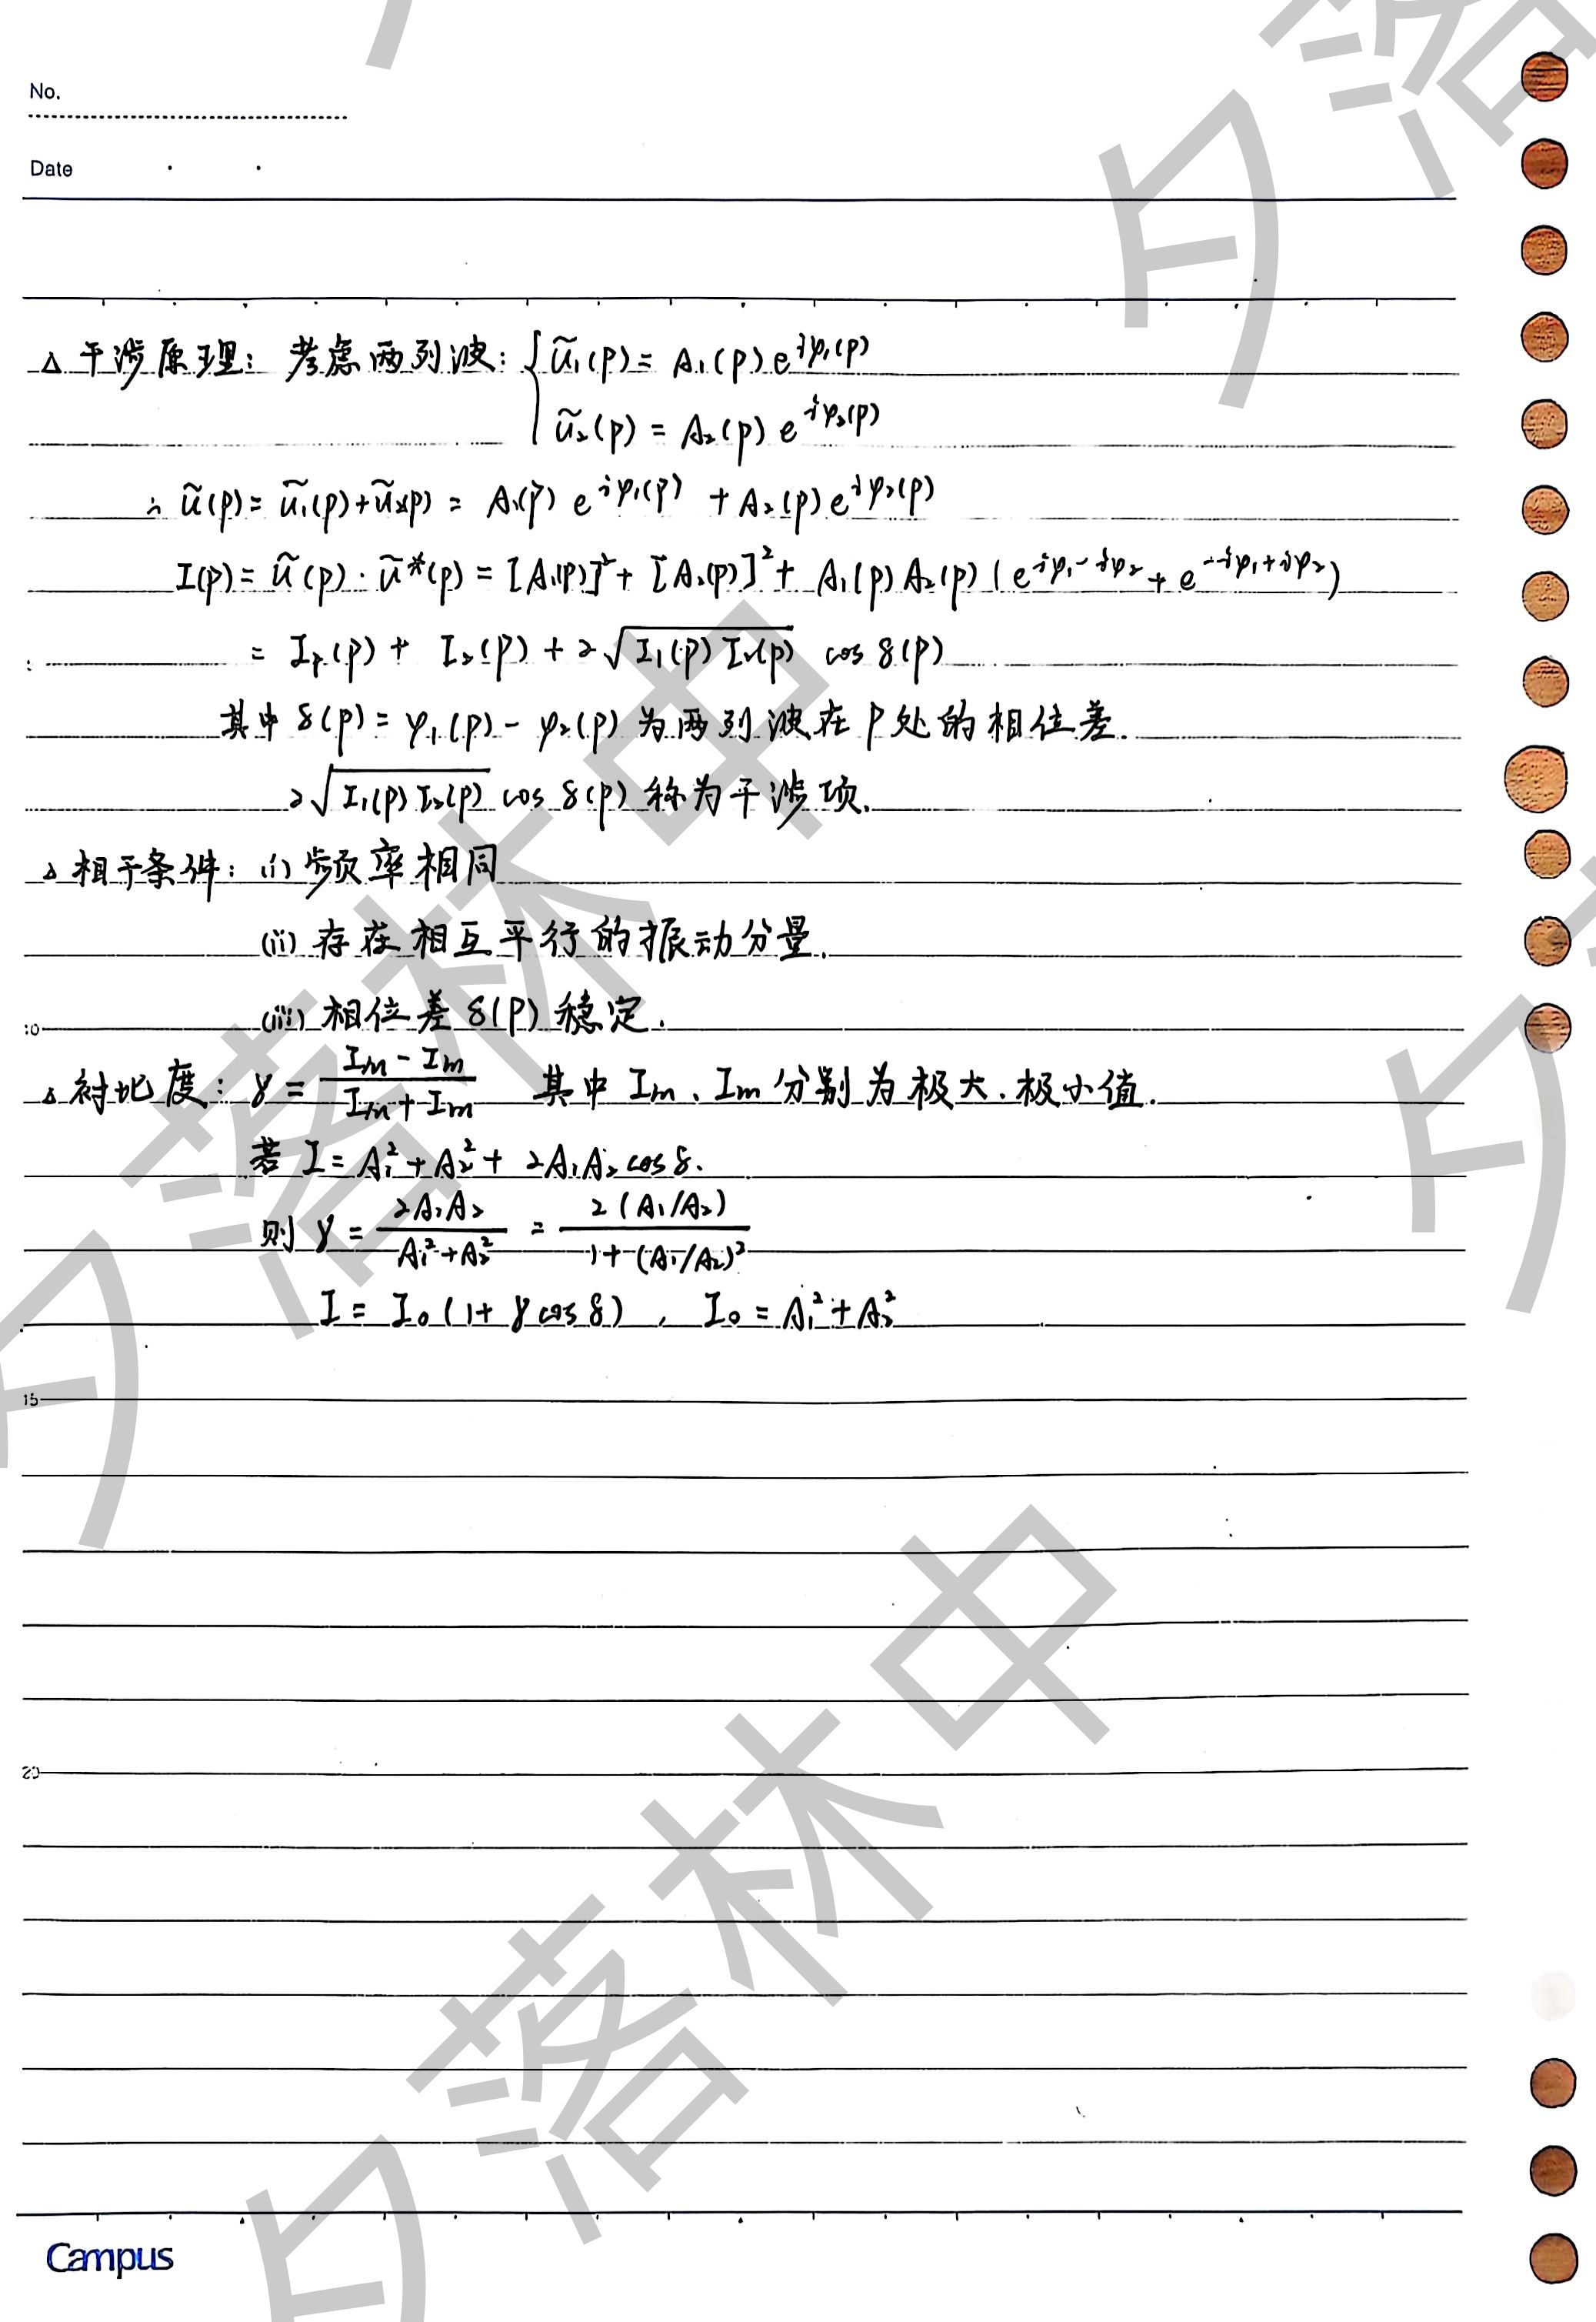 No.
Date
△ 干涉原理：考虑两列波：{ ũ₁(p) = A₁(p) e^{iφ₁(p)}
ũ₂(p) = A₂(p) e^{iφ₂(p)}
∴ ũ(p) = ũ₁(p) + ũ₂(p) = A₁(p) e^{iφ₁(p)} + A₂(p) e^{iφ₂(p)}
I(p) = ũ(p) · ũ*(p) = [A₁(p)]² + [A₂(p)]² + A₁(p) A₂(p) (e^{iφ₁-iφ₂} + e^{-iφ₁+iφ₂})
= I₁(p) + I₂(p) + 2√(I₁(p) I₂(p)) cos δ(p)
其中 δ(p) = φ₁(p) - φ₂(p) 为两列波在 P 处的相位差.
2√(I₁(p) I₂(p)) cos δ(p) 称为干涉项.
△ 相干条件：(i) 频率相同
(ii) 存在相互平行的振动分量.
10 (iii) 相位差 δ(p) 稳定.
△ 衬比度：γ = (I_M - I_m)/(I_M + I_m) 其中 I_M、I_m 分别为极大、极小值.
若 I = A₁² + A₂² + 2A₁A₂ cos δ.
则 γ = 2A₁A₂/(A₁² + A₂²) = 2(A₁/A₂)/(1 + (A₁/A₂)²)
I = I₀(1 + γ cos δ) , I₀ = A₁² + A₂²
15
20
Campus
夕落林中
夕落林中
夕落
夕